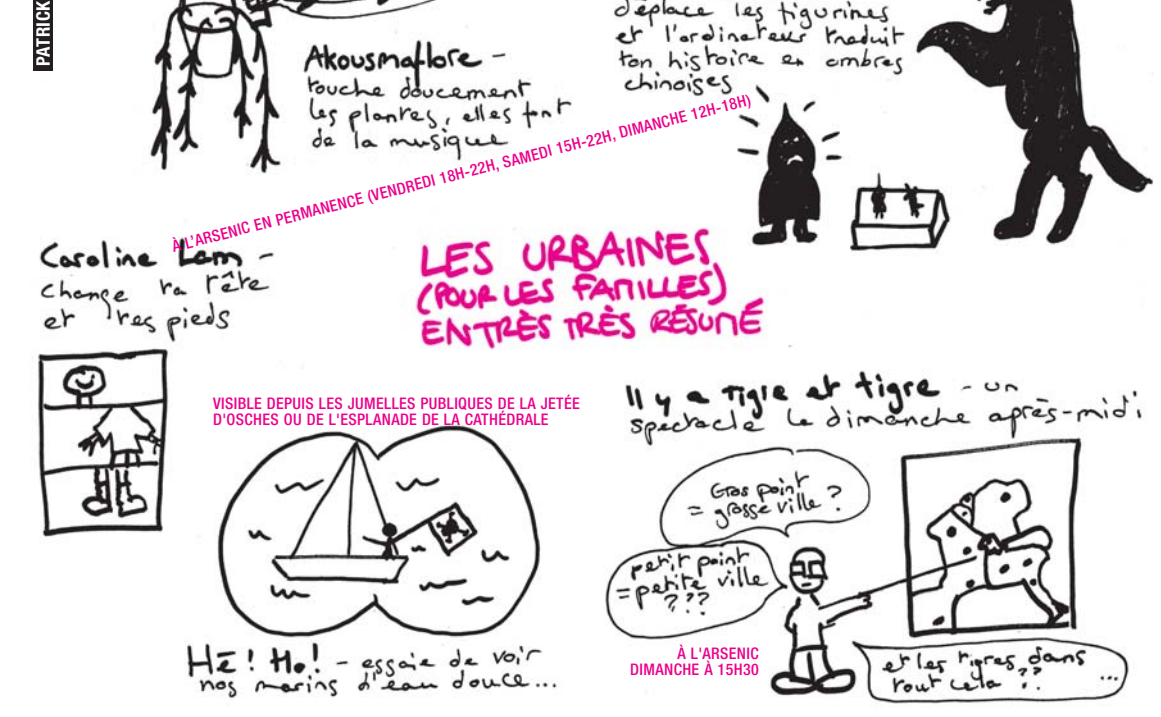 PATRICK
Akousmaflore –
touche doucement
les plantes, elles font
de la musique
déplace les figurines
et l'ordinateur traduit
ton histoire en ombres
chinoises
À L'ARSENIC EN PERMANENCE (VENDREDI 18H-22H, SAMEDI 15H-22H, DIMANCHE 12H-18H)
Caroline Lam –
change ta tête
et tes pieds
LES URBAINES
(POUR LES FAMILLES)
EN TRÈS TRÈS RÉSUMÉ
VISIBLE DEPUIS LES JUMELLES PUBLIQUES DE LA JETÉE
D'OSCHES OU DE L'ESPLANADE DE LA CATHÉDRALE
Hé! Ho! – essaie de voir
nos marins d'eau douce...
Il y a tigre et tigre – un
spectacle le dimanche après-midi
Gros point
= grosse ville ?
petit point
= petite ville
???
À L'ARSENIC
DIMANCHE À 15H30
et les tigres dans
tout cela ?? ...